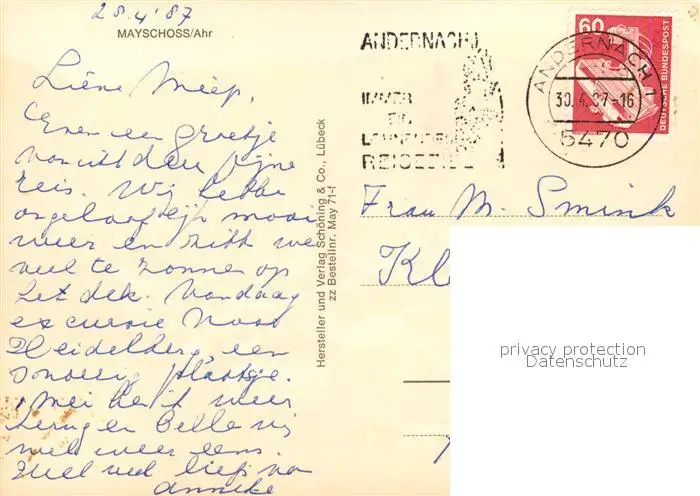 28.4.'87
MAYSCHOSS/Ahr
Lieve Miep,
Even een groetje
vanuit deze fijne
reis. Wij hebben
ongelooflijk mooi
weer en zitten we
veel te zonnen op
het dek. Vandaag
excursie naar
Heidelberg, een
snoezig plaatsje.
1 mei ben ik weer
terug en bellen wij
wel weer eens.
Heel veel liefs van
Anneke
Hersteller und Verlag Schöning & Co., Lübeck
zz Bestellnr. May 71-f
ANDERNACH
IMMER
EIN
LOHNENDES
REISEZIEL
60
DEUTSCHE BUNDESPOST
ANDERNACH 1
30.4.87-16
5470
Frau M. Smink
privacy protection
Datenschutz